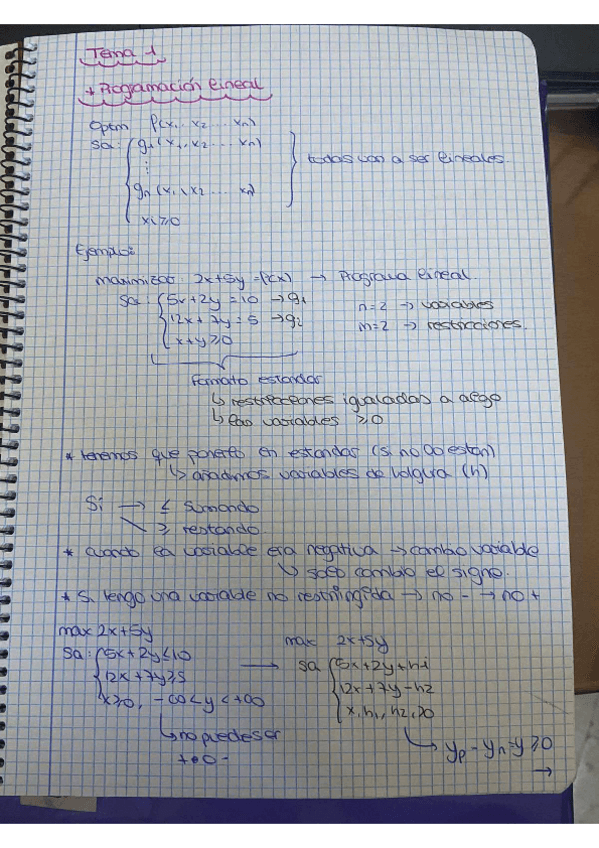 Tema 1
+ Programación lineal
Optm f(x₁, x₂ ... xn)
sa: g₁(x₁, x₂ ... xn)
⋮
gn(x₁, x₂ ... xn)
xi ≥ 0
todas van a ser lineales.
Ejemplo:
maximizar: 2x+5y = f(x) → Programa lineal.
sa: 5x+2y = 10 → g₁
12x+7y = 5 → g₂
x+y ≥ 0
n=2 → variables
m=2 → restricciones
Formato estandar
↳ restricciones igualadas a algo
↳ las variables ≥ 0
* tenemos que ponerlo en estandar (si no lo están)
↳ añadimos variables de holgura (h)
Si → ≤ sumando
↘ ≥ restando
* cuando la variable era negativa → cambio variable
↳ solo cambio el signo.
* Si tengo una variable no restringida → no - → no +
max 2x+5y
sa: 5x+2y ≤ 10
12x+7y ≥ 5
x≥0, -∞<y<+∞
↳ no puede ser
+ o -
→
max 2x+5y
sa 5x+2y+h1
12x+7y-h2
x, h1, h2, ≥0
↳ yp - yn = y ≥ 0
→